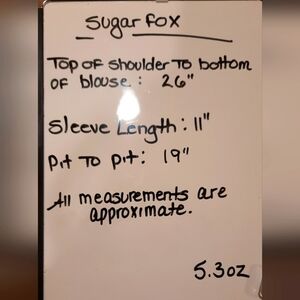 Sugar Fox
Top of shoulder to bottom
of blouse: 26"
Sleeve Length: 11"
Pit to pit: 19"
All measurements are
approximate.
5.3oz